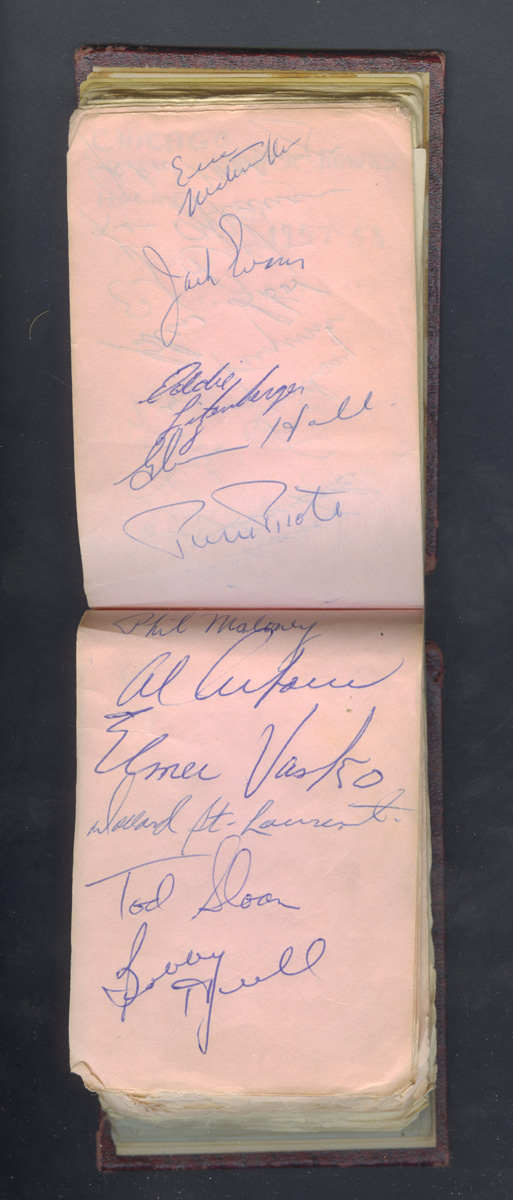 Eric
Nesterenko
Jack Evans
Eddie
Litzenberger
Glenn Hall
Pierre Pilote
Phil Maloney
Al Arbour
Elmer Vasko
Dollard St-Laurent.
Tod Sloan
Bobby
Hull